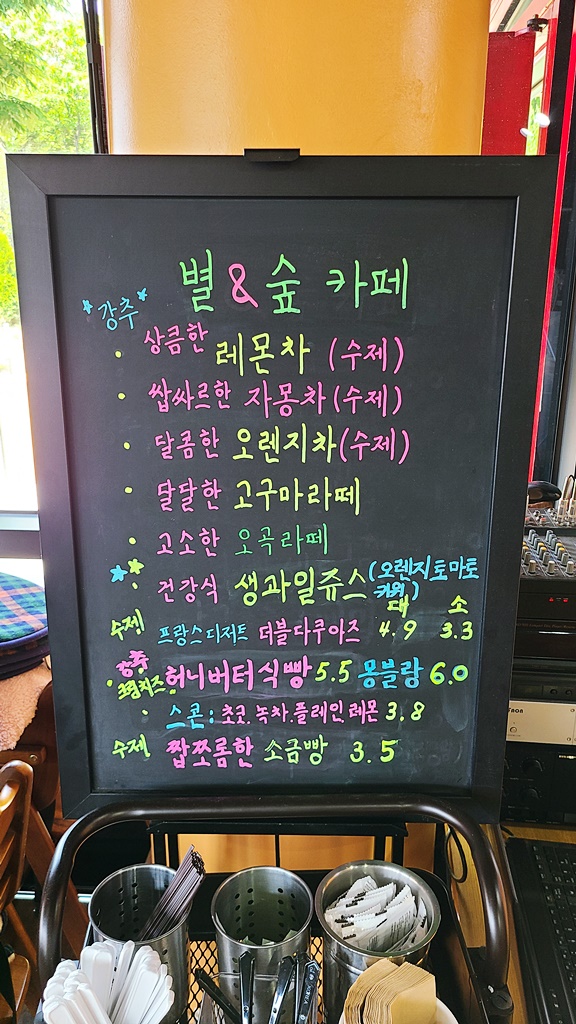 별 & 숲 카페
강추
상큼한 레몬차 (수제)
쌉싸르한 자몽차 (수제)
달콤한 오렌지차 (수제)
달달한 고구마라떼
고소한 오곡라떼
건강식 생과일쥬스 (오렌지토마토
키위)
대 소
수제 프랑스디저트 더블다쿠아즈 4.9 3.3
강추
크림치즈 허니버터식빵 5.5 몽블랑 6.0
스콘: 초코.녹차.플레인.레몬 3.8
수제 짭쪼롬한 소금빵 3.5